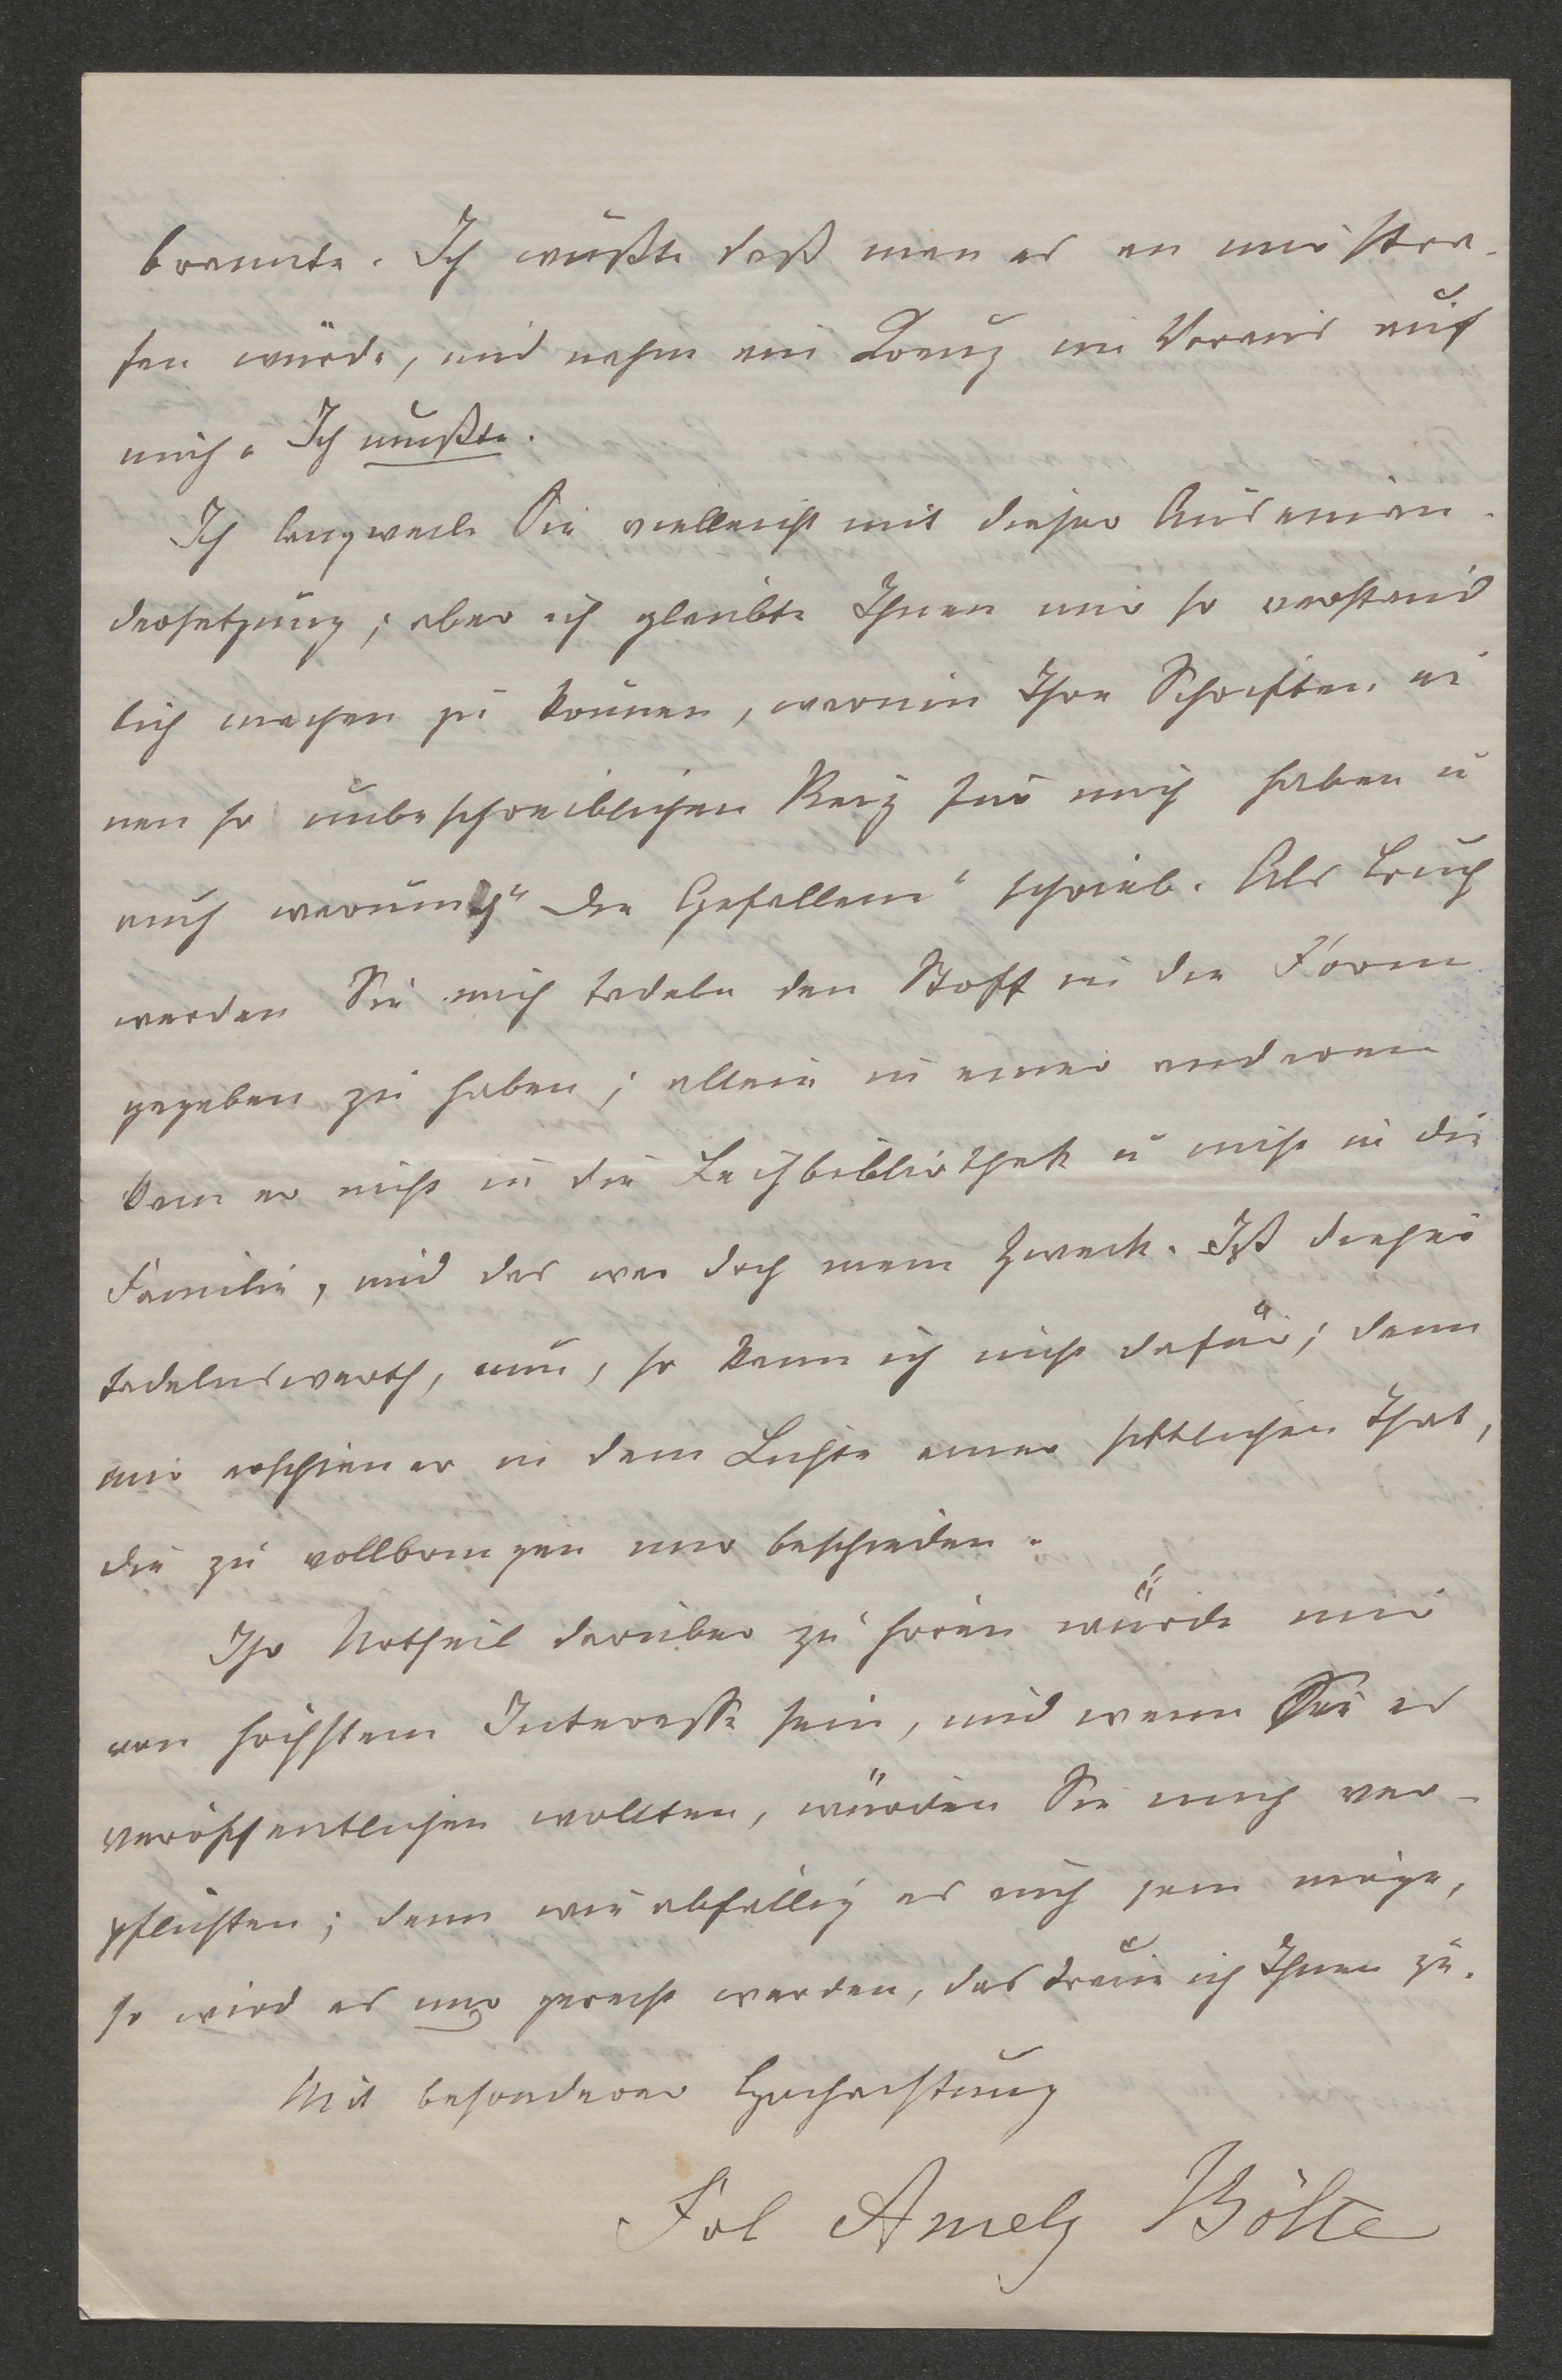 brannte. Ich wußte daß man es an mir stra-
fen würde, und nahm ein Kreuz im Voraus auf
mich. Ich mußte.
Ich langweile Sie vielleicht mit dieser Auseinan-
dersetzung; aber ich glaubte Ihnen nur so verständ
lich machen zu können, warum Ihre Schriften ei
nen so unbeschreiblichen Reiz für mich haben u
auch warum ich "Die Gefallene" schrieb. Als Buch
werden Sie mich tadeln den Stoff in der Form
gegeben zu haben; allein in einer anderen
kam er nicht in die Leihbibliothek u nicht in die
Familie, und das war doch mein Zweck. Ist dieser
tadelnswerth, nun, so kann ich nicht dafür; denn
mir erschien er in dem Lichte einer sittlichen That,
die zu vollbringen mir beschieden.
Ihr Urtheil darüber zu hören würde mir
von höchstem Interesse sein, und wenn Sie es
veröffentlichen wollten, würden Sie mich ver-
pflichten; denn wie abfällig es auch sein möge,
so wird es mir gerecht werden, das traue ich Ihnen zu.
Mit besonderer Hochachtung
Frl Amely Bölte